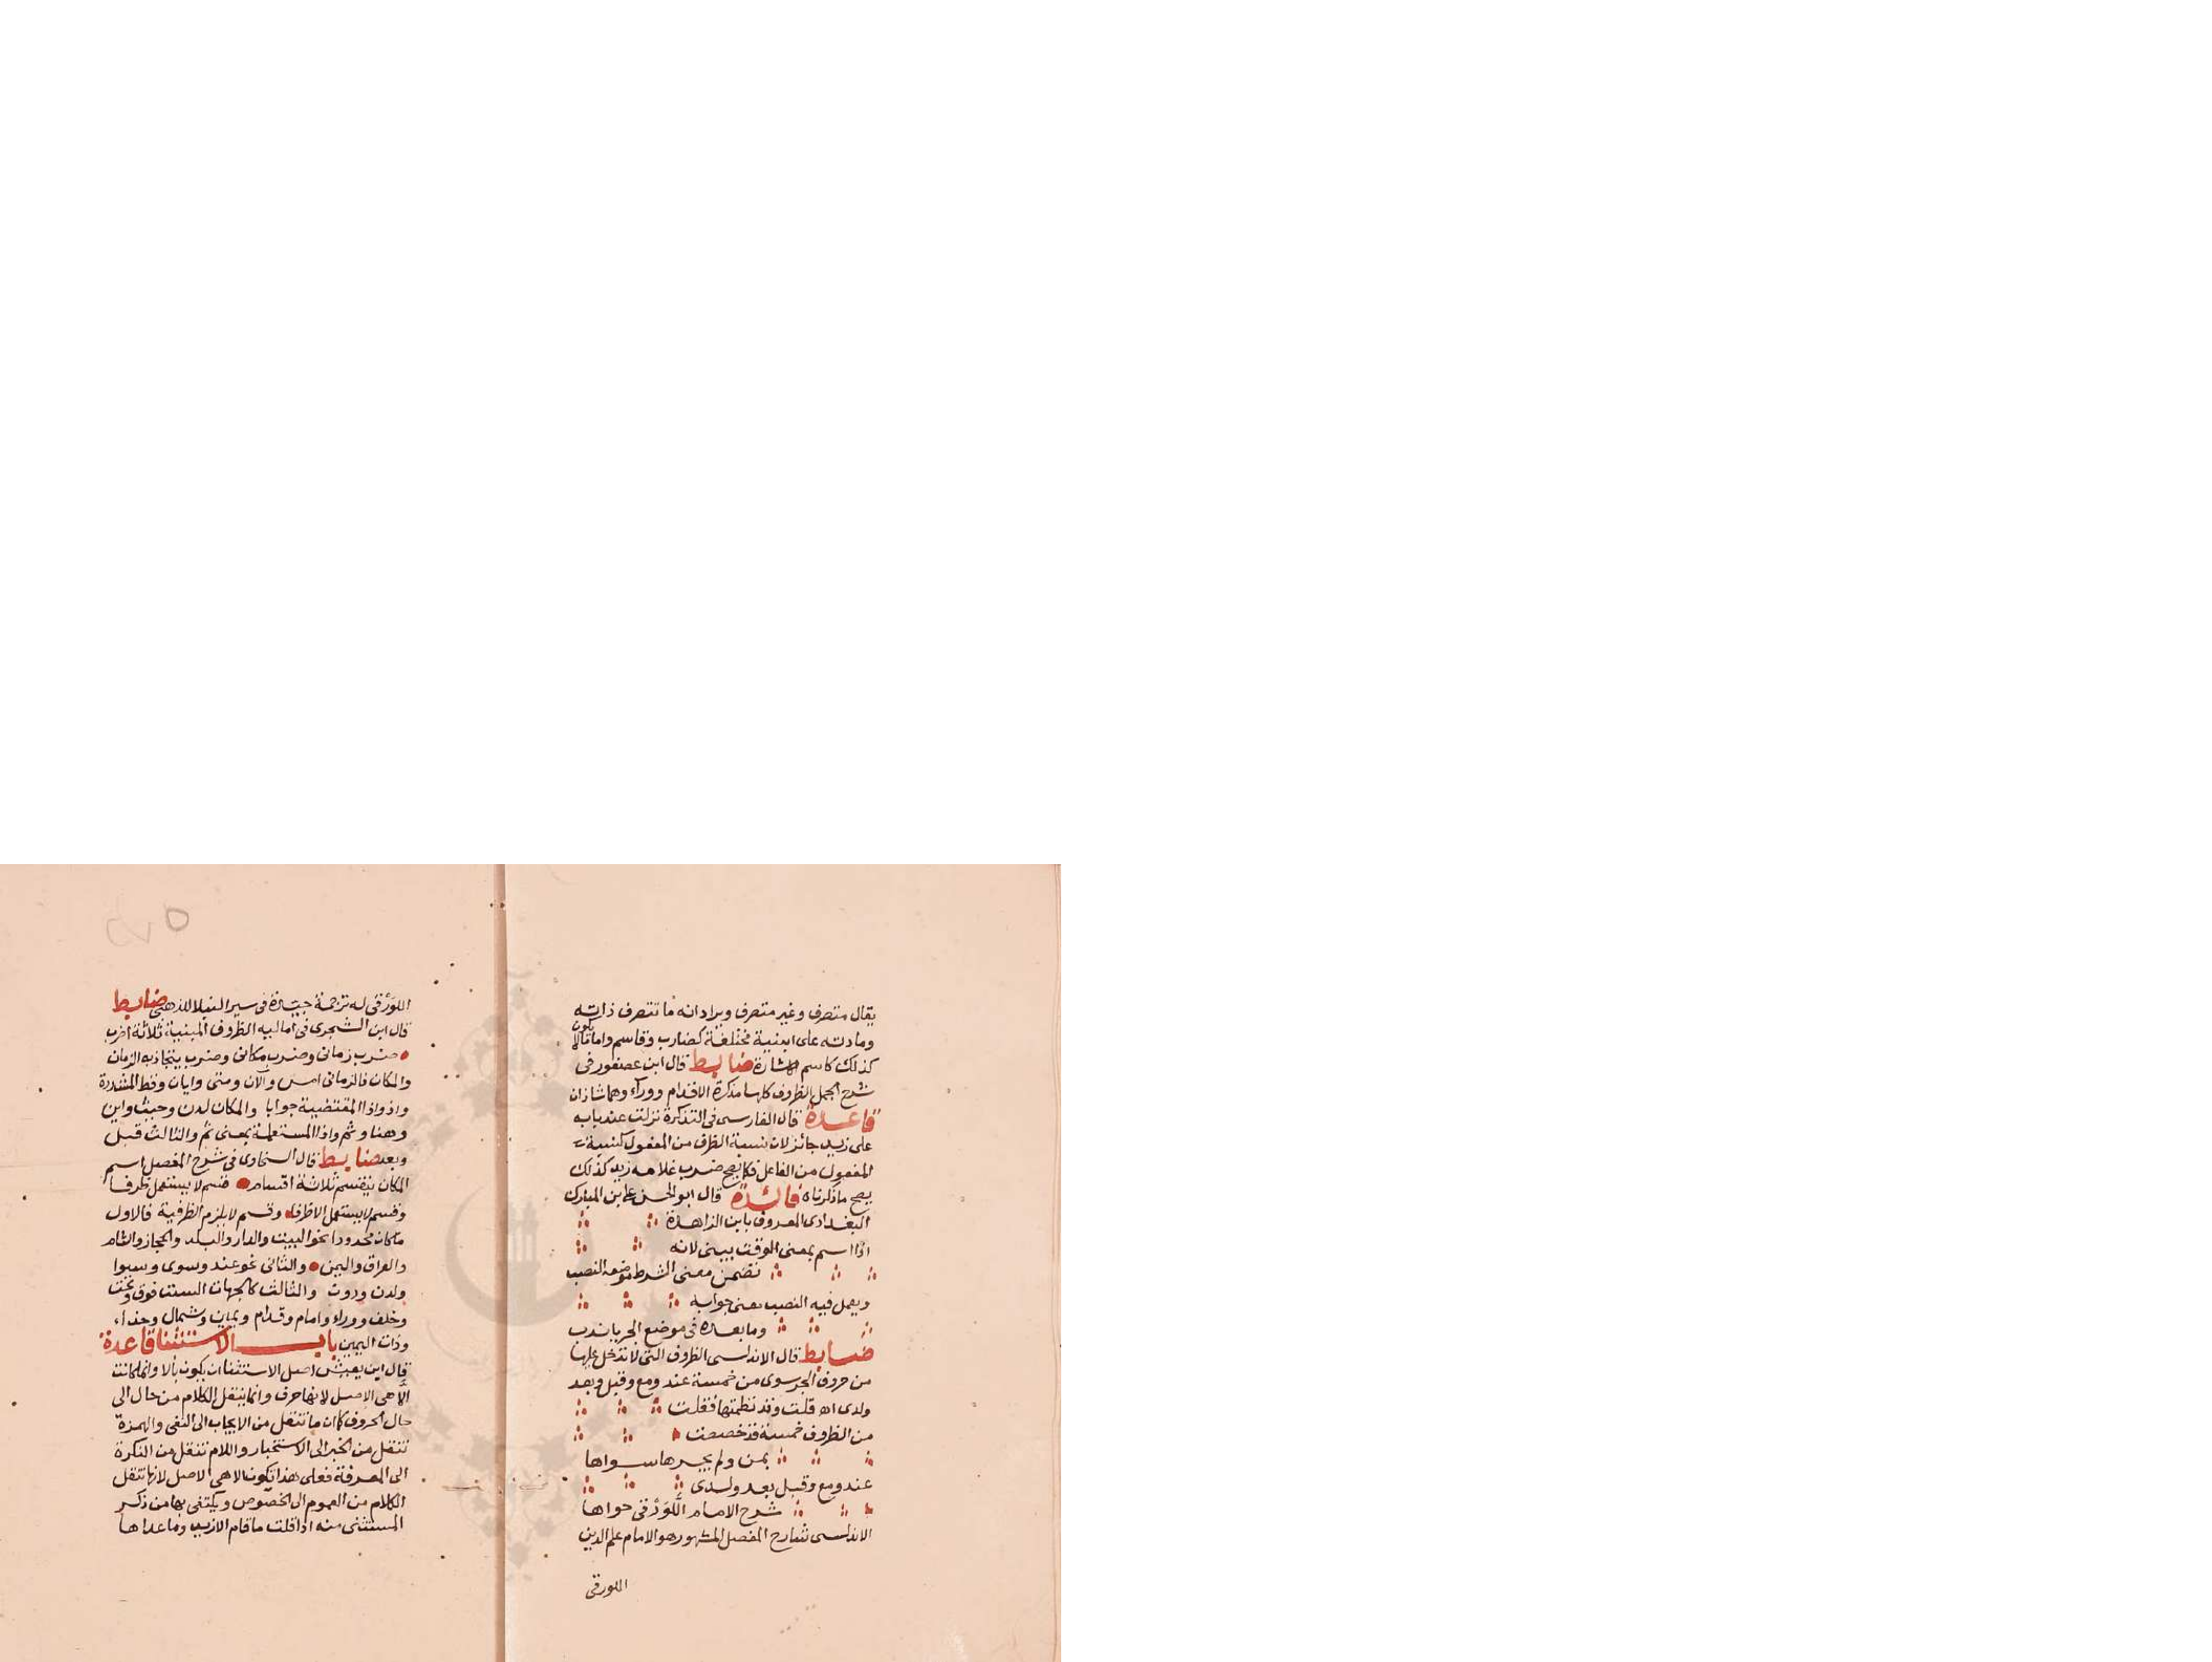 يقال متصرف وغير متصرف ويراد انه ما تتصرف ذاته
ومادته على ابنية مختلفة كضارب وقاسم واما ما لا يكون
كذلك كاسم الاشارة ضابط قال ابن عصفور في
شرح الجمل الظروف كلها مذكرة الا قدام ووراء وهما شاذان
قاعدة قال الفارسى فى التذكرة نزلت عند بابه
على زيد جائز لان نسبة الظرف من المفعول كنسبة
المفعول من الفاعل فكما يصح ضرب غلامه زيد كذلك
يصح ما ذكرناه فائدة قال ابو الحسن على ابن المبارك
البغدادى المعروف بابن الزاهدة
اذا اسم بمعنى الوقت يبنى لانه
تضمن معنى الشرط موضعه النصب
ويعمل فيه النصب معنى جوابه
وما بعده فى موضع الجر يا ندب
ضابط قال الاندلسى الظروف التى لا تدخل عليها
من حروف الجر سوى من خمسة عند ومع وقبل وبعد
ولدى اه قلت وقد نظمتها فقلت
من الظروف خمسة قد خصصت
بمن ولم يجرها سواها
عند ومع وقبل بعد ولدى
شرح الامام اللورقى حواها
الاندلسى شارح المفصل المشهور هو الامام علم الدين
اللورقى
اللورقى له ترجمة جيدة فى سير النبلا للذهبى ضابط
قال ابن الشجرى فى اماليه الظروف المبنية ثلاثة اضرب
ضرب زمانى وضرب مكانى وضرب يتجاذبه الزمان
والمكان فالزمانى امس والآن ومتى وايان وقط المشددة
واذ واذا المقتضية جوابا والمكان لدن وحيث واين
وهنا وثم واذا المستعملة بمعنى ثم والثالث قبل
وبعد ضابط قال السخاوى فى شرح المفصل اسم
المكان ينقسم ثلاثة اقسام قسم لا يستعمل ظرفا
وقسم لا يستعمل الا ظرفا وقسم لا يلزم الظرفية فالاول
ما كان محدودا نحو البيت والدار والبلد والحجاز والشام
والعراق واليمن والثانى نحو عند وسوى وسوا
ولدن ودون والثالث كالجهات الست فوق وتحت
وخلف ووراء وامام وقدام ويمين وشمال وحذاء
وذات اليمين باب الاستثنا قاعدة
قال ابن يعيش اصل الاستثنا ان يكون بالا وانما كانت
الا هى الاصل لانها حرف وانما ينقل الكلام من حال الى
حال الحروف كما ان ما تنقل من الايجاب الى النفى والهمزة
تنقل من الخبر الى الاستخبار واللام تنقل من النكرة
الى المعرفة فعلى هذا تكون الا هى الاصل لانها تنقل
الكلام من العموم الى الخصوص ويكتفى بها من ذكر
المستثنى منه اذا قلت ما قام الا زيد وما عداها